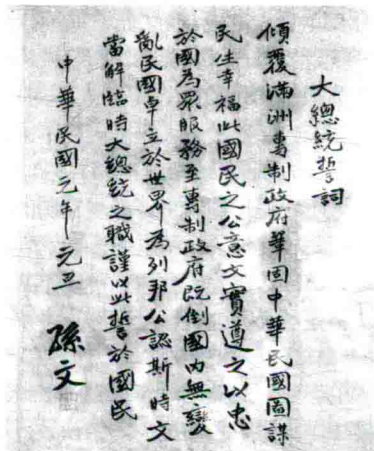 大總統誓詞
傾覆滿洲專制政府鞏固中華民國圖謀
民生幸福此國民之公意文實遵之以忠
於國為眾服務至專制政府既倒國內無變
亂民國卓立於世界為列邦公認斯時文
當解臨時大總統之職謹以此誓於國民
中華民國元年元旦
孫文